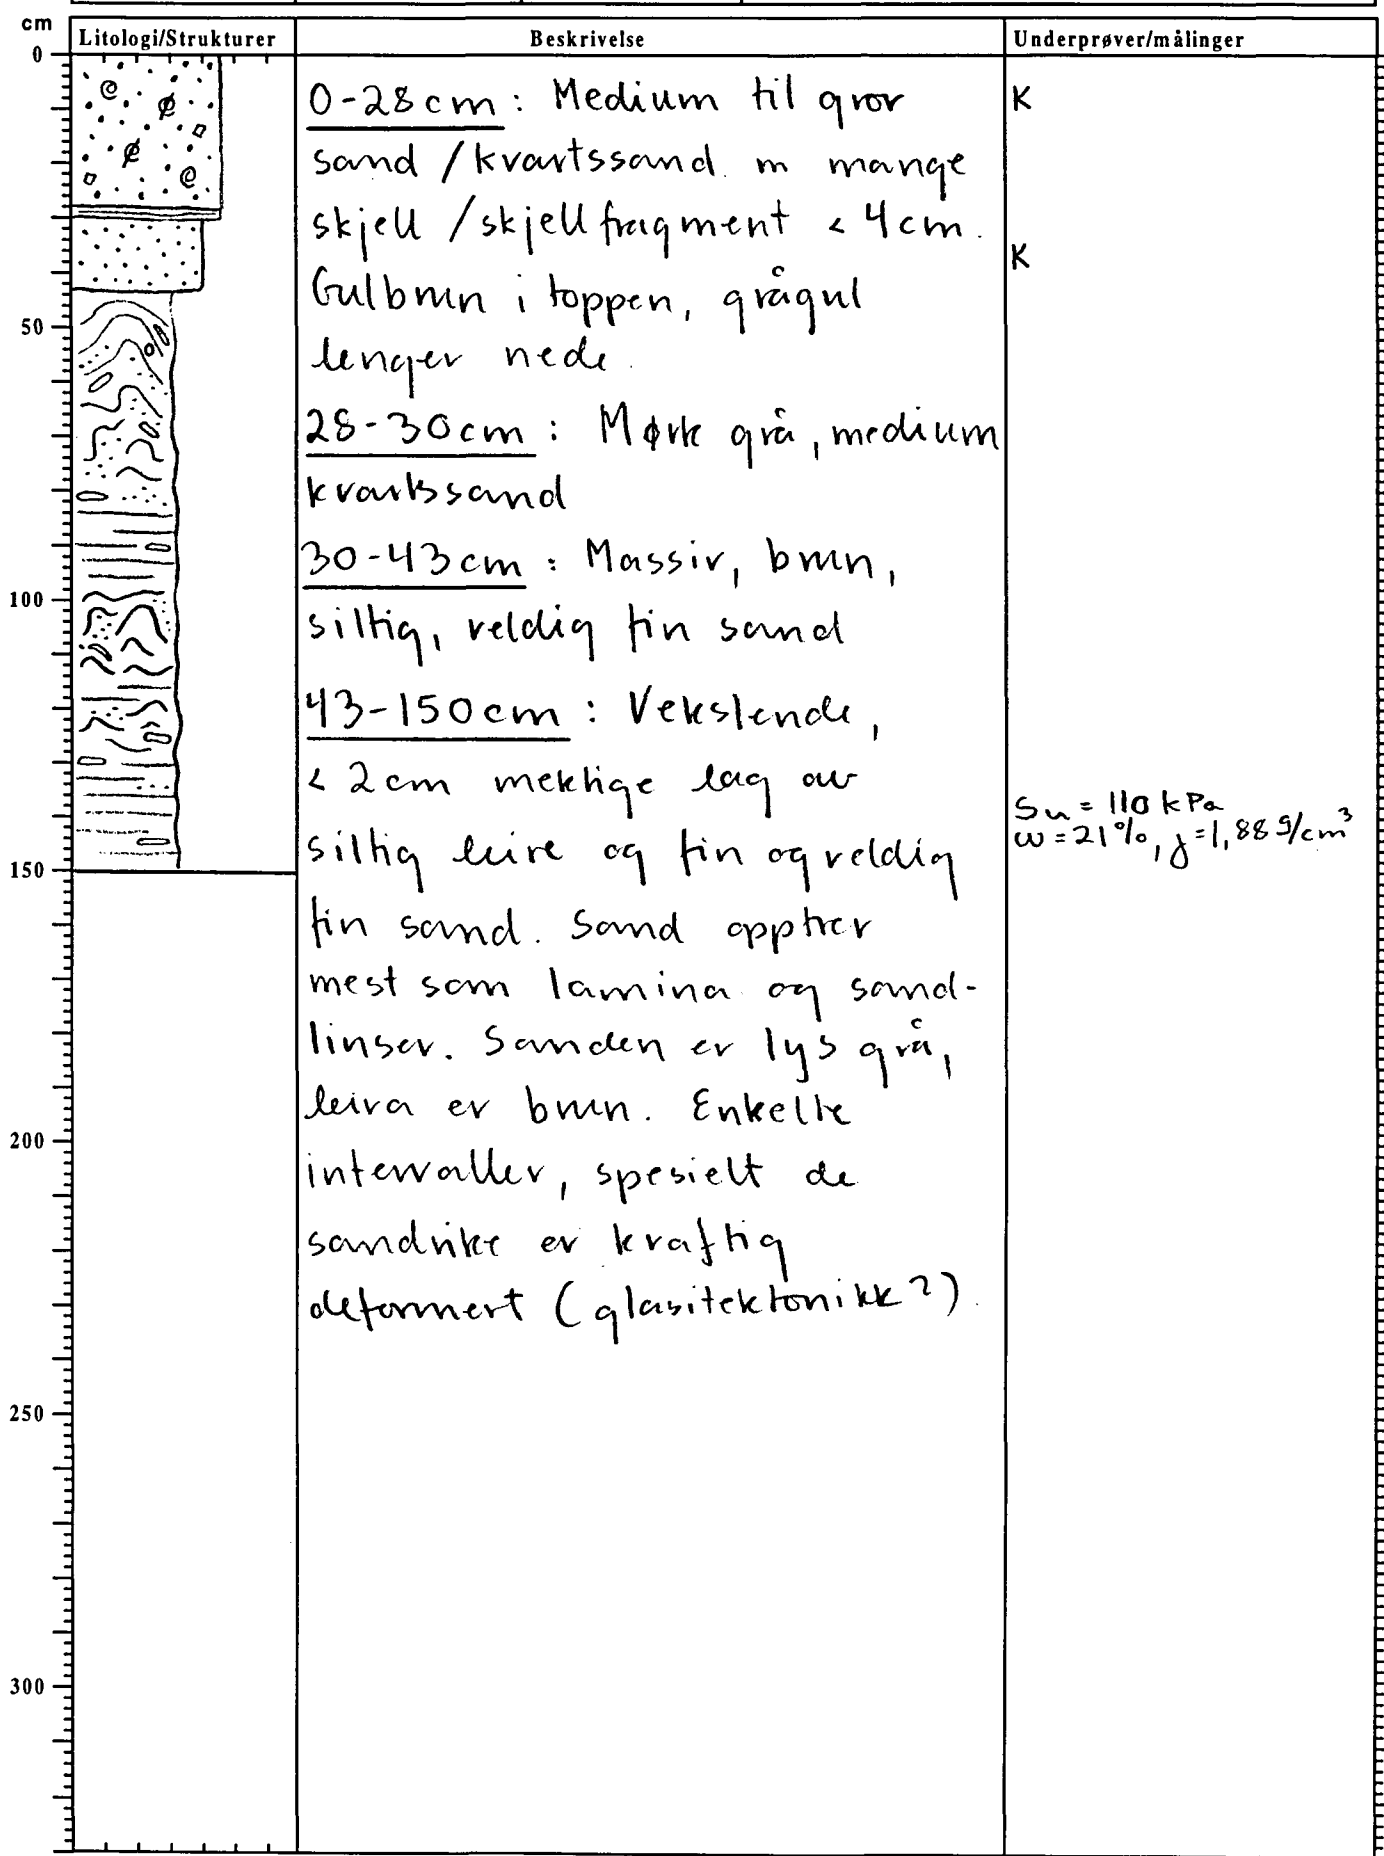 cm
Litologi/Strukturer
Beskrivelse
Underprøver/målinger
0
50
100
150
200
250
300
0-28cm: Medium til grov
sand /kvartssand m mange
skjell /skjellfragment < 4cm.
Gulbrun i toppen, grågul
lenger nede.
28-30cm: Mørk grå, medium
kvartssand
30-43cm: Massiv, brun,
siltig, veldig fin sand
43-150cm: Vekslende,
< 2cm mektige lag av
siltig leire og fin og veldig
fin sand. Sand opptrer
mest som lamina og sand-
linser. Sanden er lys grå,
leira er brun. Enkelte
intervaller, spesielt de
sandrike er kraftig
deformert (glasitektonikk?).
K
K
Su = 110 kPa
w = 21%, γ = 1,88 g/cm³